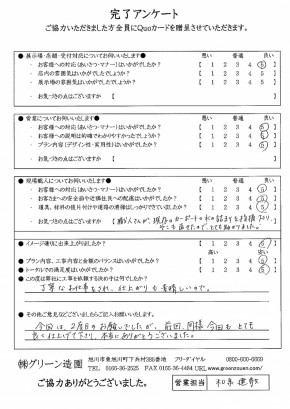 完了アンケート
ご協力いただきました方全員にQuoカードを贈呈させていただきます。
●展示場・店舗・受付対応についてお伺いいたします● 悪い 普通 良い
・お客様への対応(あいさつ・マナー)はいかがでしたか? 【 1 2 3 4 5 】
・店内の雰囲気はいかがでしたでしょうか? 【 1 2 3 4 5 】
・展示場の雰囲気はいかがでしたか? 【 1 2 3 4 5 】
・お気づきの点はございますか 【 】
●営業についてお伺いいたします● 悪い 普通 良い
・お客様への対応(あいさつ・マナー)はいかがでしたか? 【 1 2 3 4 5 】
・お客様への説明は的確でわかりやすかったでしょうか? 【 1 2 3 4 5 】
・プラン内容(デザイン性・実用性)はいかがでしたか? 【 1 2 3 4 5 】
・お気づきの点はございますか 【 】
●現場職人についてお伺いいたします● 悪い 普通 良い
・お客様への対応(あいさつ・マナー)はいかがでしたか? 【 1 2 3 4 5 】
・お客さまへの安全面や近隣住民への配慮はいかがでしたか? 【 1 2 3 4 5 】
・道具、材料の後片付けや道路の清掃はしっかりできていましたか? 【 1 2 3 4 5 】
・お気づきの点はございますか 【 職人さんが、現存のカーポートの水の詰まりを指摘下さり
とても助かりました。
●イメージ通りに出来上がりましたか? 【 1 2 3 4 5 】
高い 安い
●プラン内容、工事内容と金額のバランスはいかがでしたか? 【 1 2 3 4 5 】
●トータルでの満足度はいかがでしたか? 【 1 2 3 4 5 】
●この度は弊社に工事を依頼する決め手は何でしたか?
丁寧なお仕事をされ、仕上がりも素晴しいので。
●その他ご意見などございましたらご記入お願いいたします。
今回は、2度目のお願いでしたが、前回同様今回もとても
良く仕上げて下さり、本当に有難うございました。
㈱グリーン造園
旭川市東旭川町下兵村388番地 フリーダイヤル 0800-600-6669
TEL 0166-36-2525 FAX 0166-36-4484 URL www.greenzouen.com/
ご協力ありがとうございました。
営業担当